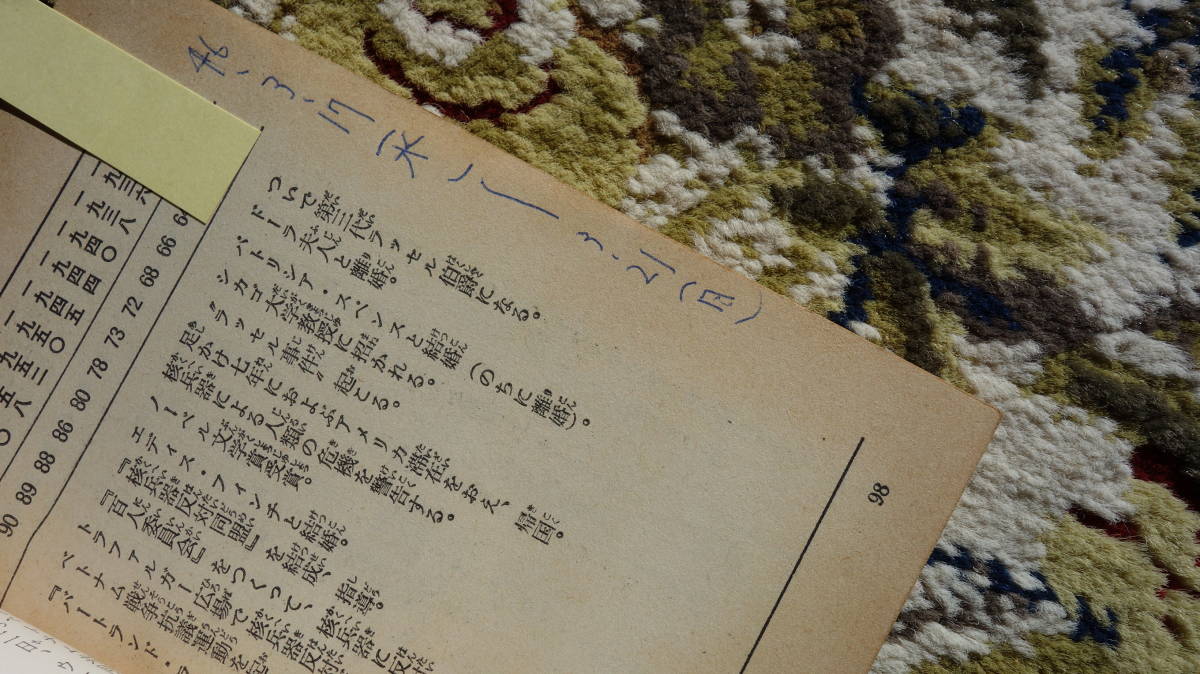 46、3、17（水）ー3、21（日）
98
ついで第三代ラッセル伯爵になる。
ドーラ夫人と離婚。
パトリシア・スペンスと結婚（のちに離婚）。
シカゴ大学教授に招かれる。
〝ラッセル事件〟起こる。
足かけ七年におよぶアメリカ滞在をおえ、帰国。
核兵器による人類の危機を警告する。
ノーベル文学賞受賞。
エディス・フィンチと結婚。
『核兵器反対同盟』を結成、指導。
『百人委員会』をつくって、核兵器に反
トラファルガー広場で核兵器反対
ベトナム戦争抗議運動を起
『バートランド・ラ
66 68 72 73 78 80 86 88 89 90
一九三六
一九三八
一九四〇
一九四四
一九四五
一九五〇
九五二
五八
〇